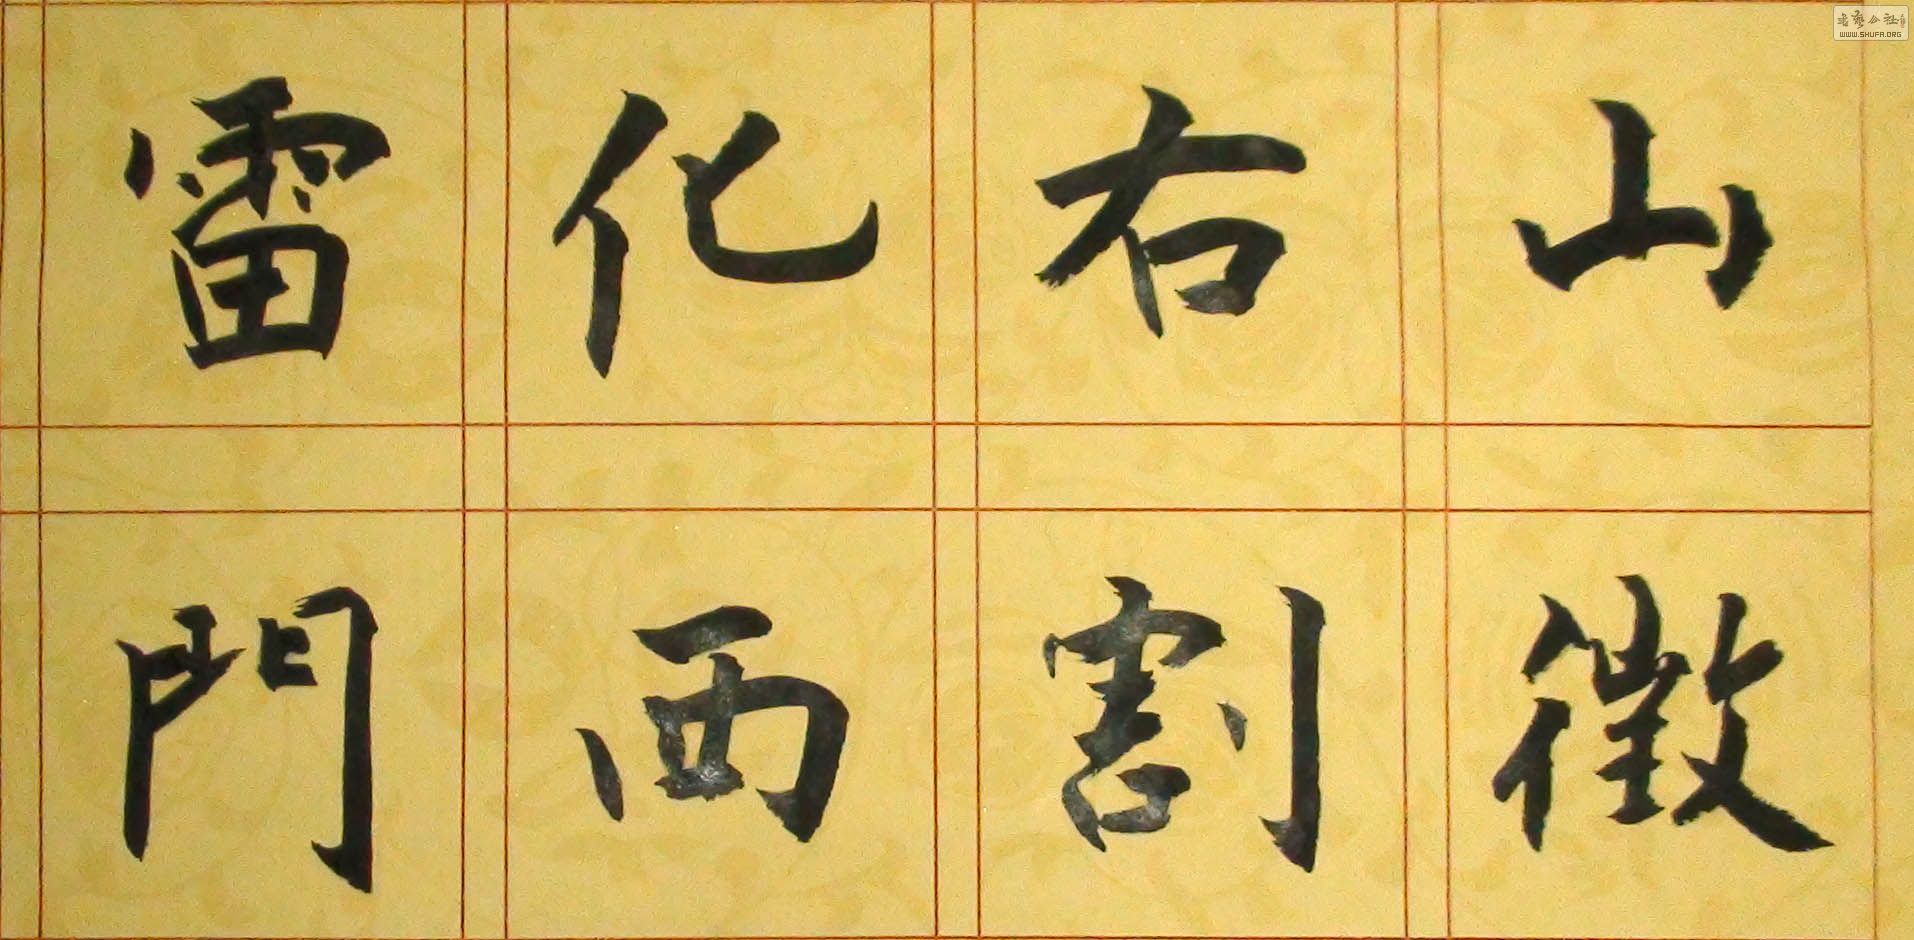 山徵
右割
化西
雷門
書藝公社
WWW.SHUFA.ORG